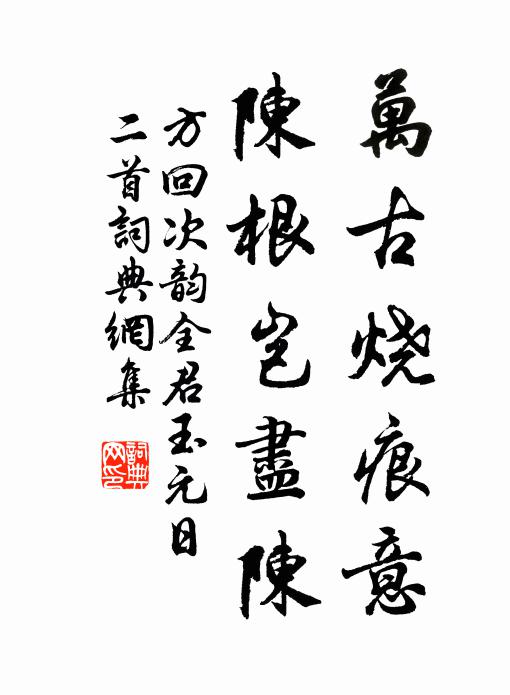 萬古烧痕意
陳根岂盡陳
方回次韵全君玉元日
二首詞典網集
詞典
网印